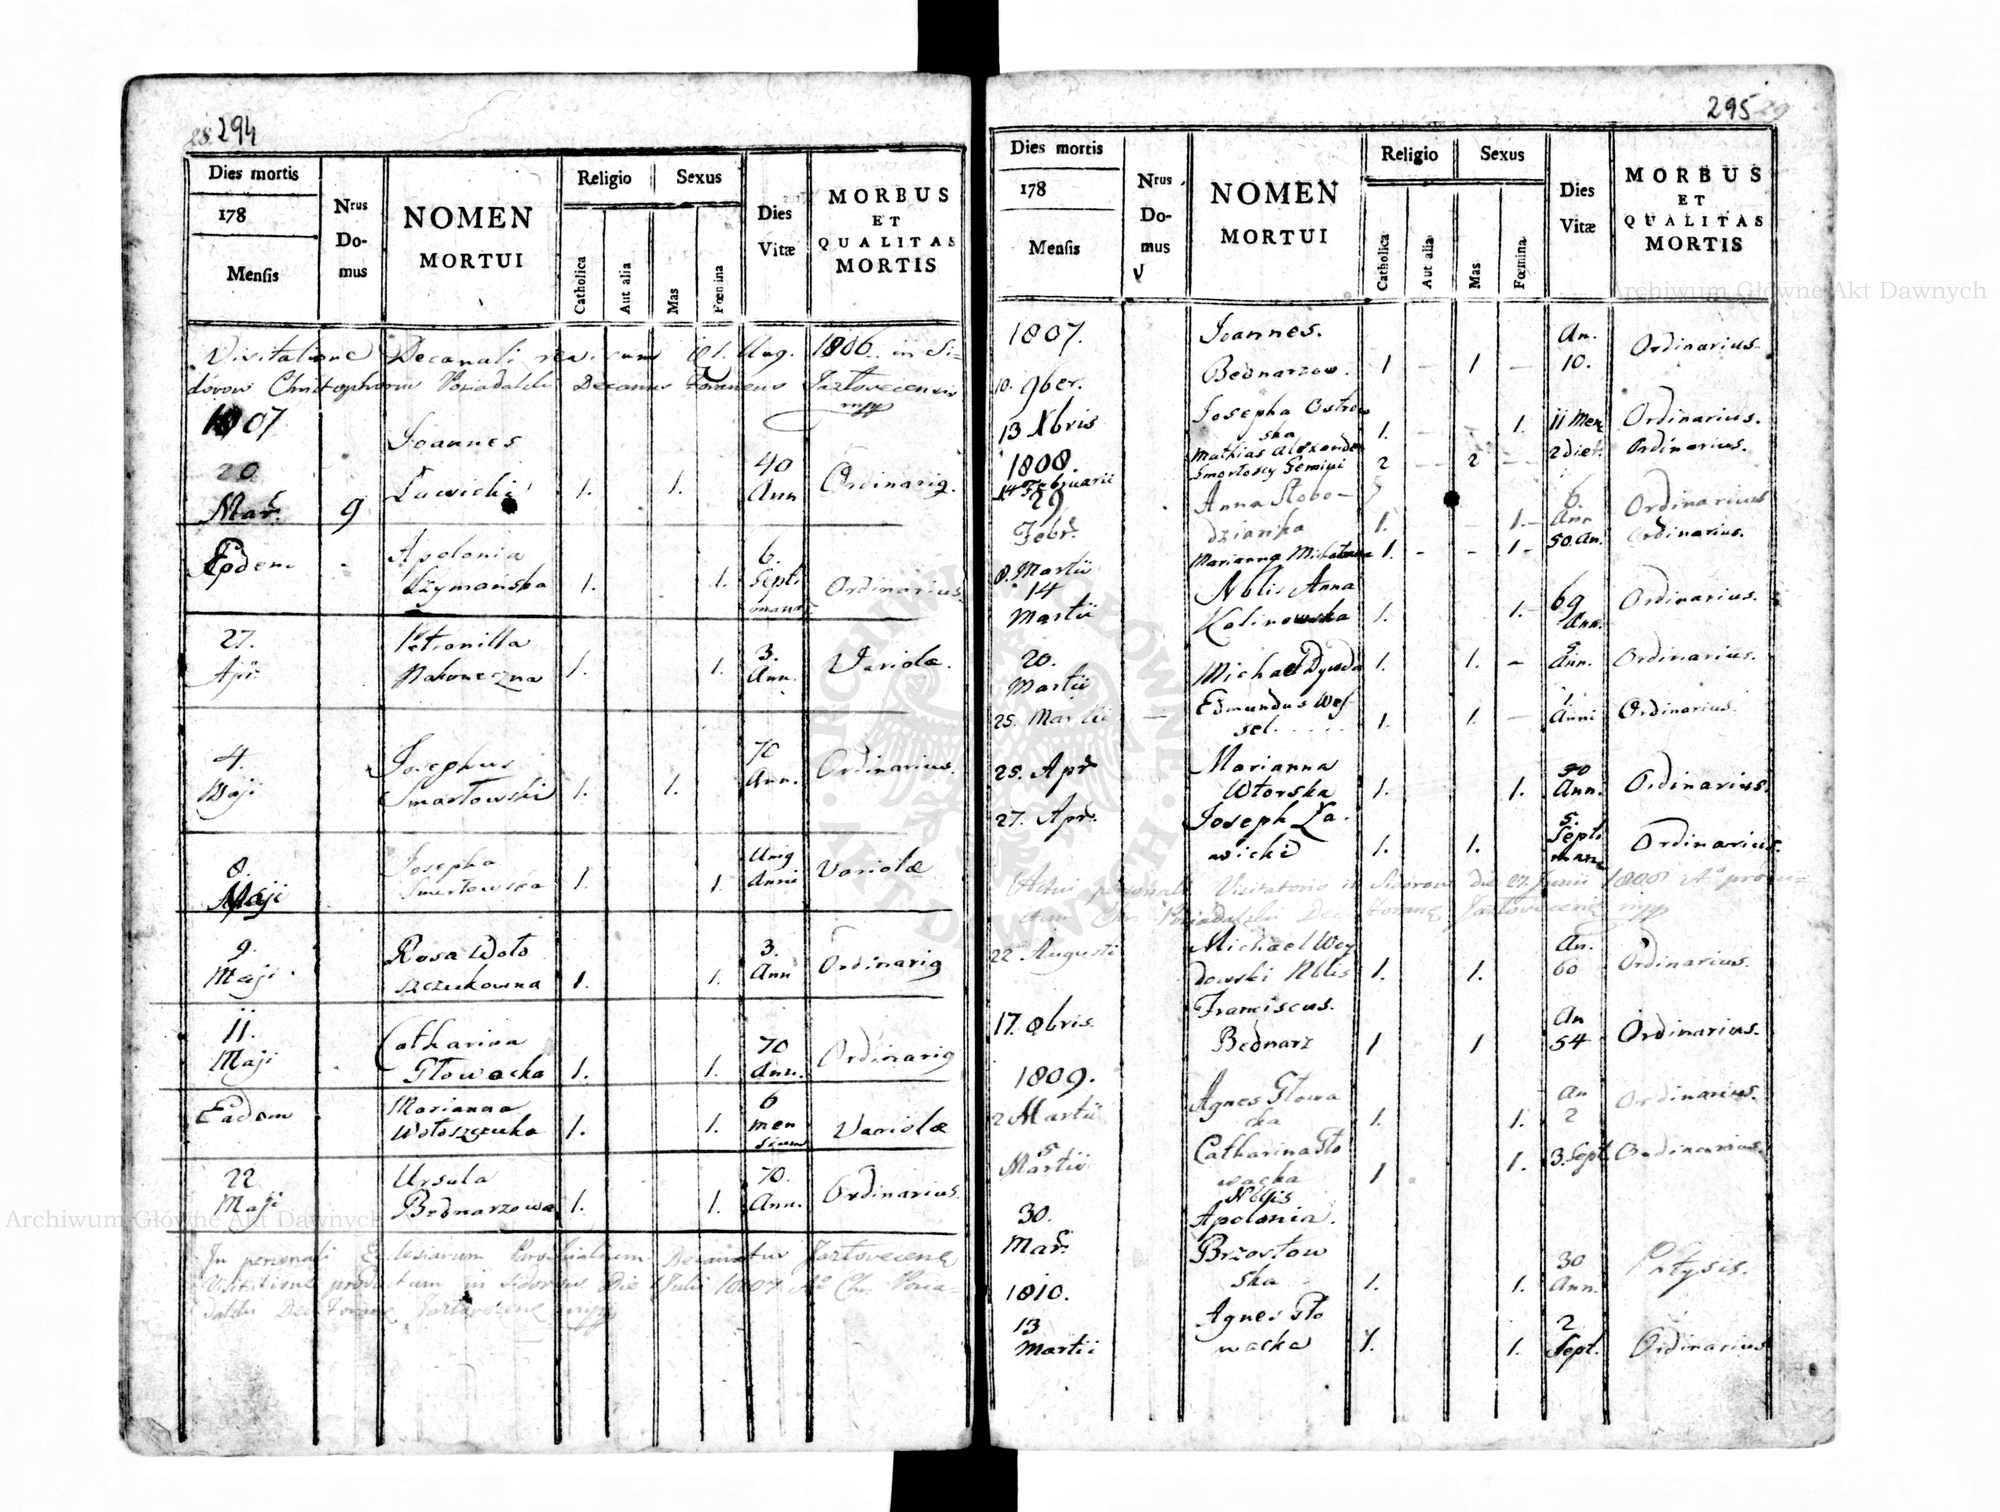 28. 294
Dies mortis
178
Mensis
Nrus
Do-
mus
NOMEN
MORTUI
Religio
Catholica
Aut alia
Sexus
Mas
Fœmina
Dies
Vitæ
MORBUS
ET
QUALITAS
MORTIS
Visitatione Decanali 1806. in Si-
dorow Decanus Foraneus Jazlovecensis
mpp
1807
20 Joannes 40
Mar. 9 Lawicki 1. 1. Ann Ordinariq.
Eodem Apolonia 6.
Szymanska 1. 1. Septi Ordinarius.
manar
27. Petronilla 3.
Apr. Nakoneczna 1. 1. Ann. Variolæ.
4. Josephus 70
Maji Smarlowski 1. 1. Ann. Ordinarius.
8. Josepha Uniq
Maji Smerlowska 1. 1. Anni Variolæ
9. Rosa Woło 3.
Maji. szczukowna 1. 1. Ann Ordinariq
11. Catharina 70
Maji Głowacka 1. 1. Ann. Ordinariq
Eadem Marianna 6
Wołoszczuka 1. 1. men Variolæ
sium
22 Ursula 70.
Maji Bednarzowa 1. 1. Ann. Ordinarius.
In personali Ecclesiarum Parochialium Decanatus
Visitatione in Sidorow Die Julii 1807
mpp
295 29
Dies mortis
178
Mensis
Nrus
Do-
mus
NOMEN
MORTUI
Religio
Catholica
Aut alia
Sexus
Mas
Fœmina
Dies
Vitæ
MORBUS
ET
QUALITAS
MORTIS
1807. Joannes. An.
10. 9ber. Bednarzow. 1 1 10. Ordinarius.
13 Xbris Josepha Ostrow
ska 1. 1. 11 Men Ordinarius.
1808. Mathias Alexander
14 Februarii Gemini 2 2 2 Ordinarius.
29 Anna Słobo- 6.
Febr. dzianka 1. 1. Ann Ordinarius
8. Martii Marianna 1. 1 50. An. Ordinarius.
14 Nblis Anna 69
Martii Kalinowska 1. 1. Ann. Ordinarius.
20.
Martii Michael 1. 1. Ann. Ordinarius.
Edmundus Wes 1.
25. Martii sel. 1. 1. Anni Ordinarius.
25. Apr Marianna 50
Wtorska 1. 1. Ann. Ordinarius.
27. Apr. Joseph La. 5.
wicki 1. 1. Septi Ordinarius.
manar
Visitatorio in Sidorow die 27. Junii 1808
mpp
22 Augusti Michael Woy An.
dowski Nblis 1. 1. 60 Ordinarius.
17. 8bris. Franciscus. An
Bednarz 1 1 54 Ordinarius.
1809.
2 Martii Agnes Głowa An
cka 1. 1. 2 Ordinarius.
5 Catharina Gło
Martii wacka 1 1. 3. Sept. Ordinarius.
30. Nblis
Mar. Apolonia.
Brzostow 30
ska 1. 1. Ann. Phtysis.
1810.
13 Agnes Gło 2
Martii wacka 1. 1. Sept. Ordinarius
Archiwum Główne Akt Dawnych
Archiwum Główne Akt Dawnych
ARCHIWUM GŁÓWNE AKT DAWNYCH